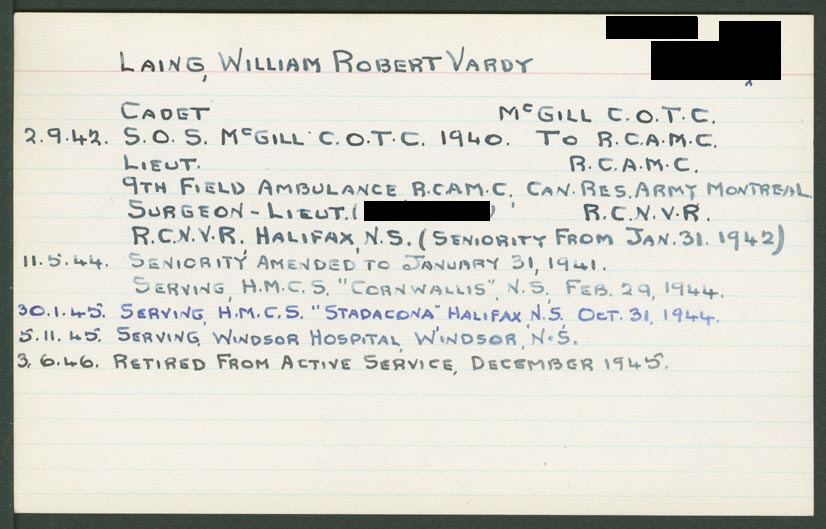 LAING, WILLIAM ROBERT VARDY
CADET McGILL C.O.T.C.
2.9.42. S.O.S. McGILL C.O.T.C. 1940. TO R.C.A.M.C.
LIEUT. R.C.A.M.C.
9TH FIELD AMBULANCE R.C.A.M.C, CAN. RES. ARMY MONTREAL
SURGEON-LIEUT. ( ) R.C.N.V.R.
R.C.N.V.R. HALIFAX, N.S. (SENIORITY FROM JAN. 31. 1942)
11.5.44. SENIORITY AMENDED TO JANUARY 31, 1941.
SERVING, H.M.C.S. "CORNWALLIS", N.S. FEB. 29, 1944.
30.1.45. SERVING, H.M.C.S. "STADACONA" HALIFAX, N.S. OCT. 31, 1944.
5.11.45. SERVING, WINDSOR HOSPITAL, WINDSOR, N.S.
3.6.46. RETIRED FROM ACTIVE SERVICE, DECEMBER 1945.